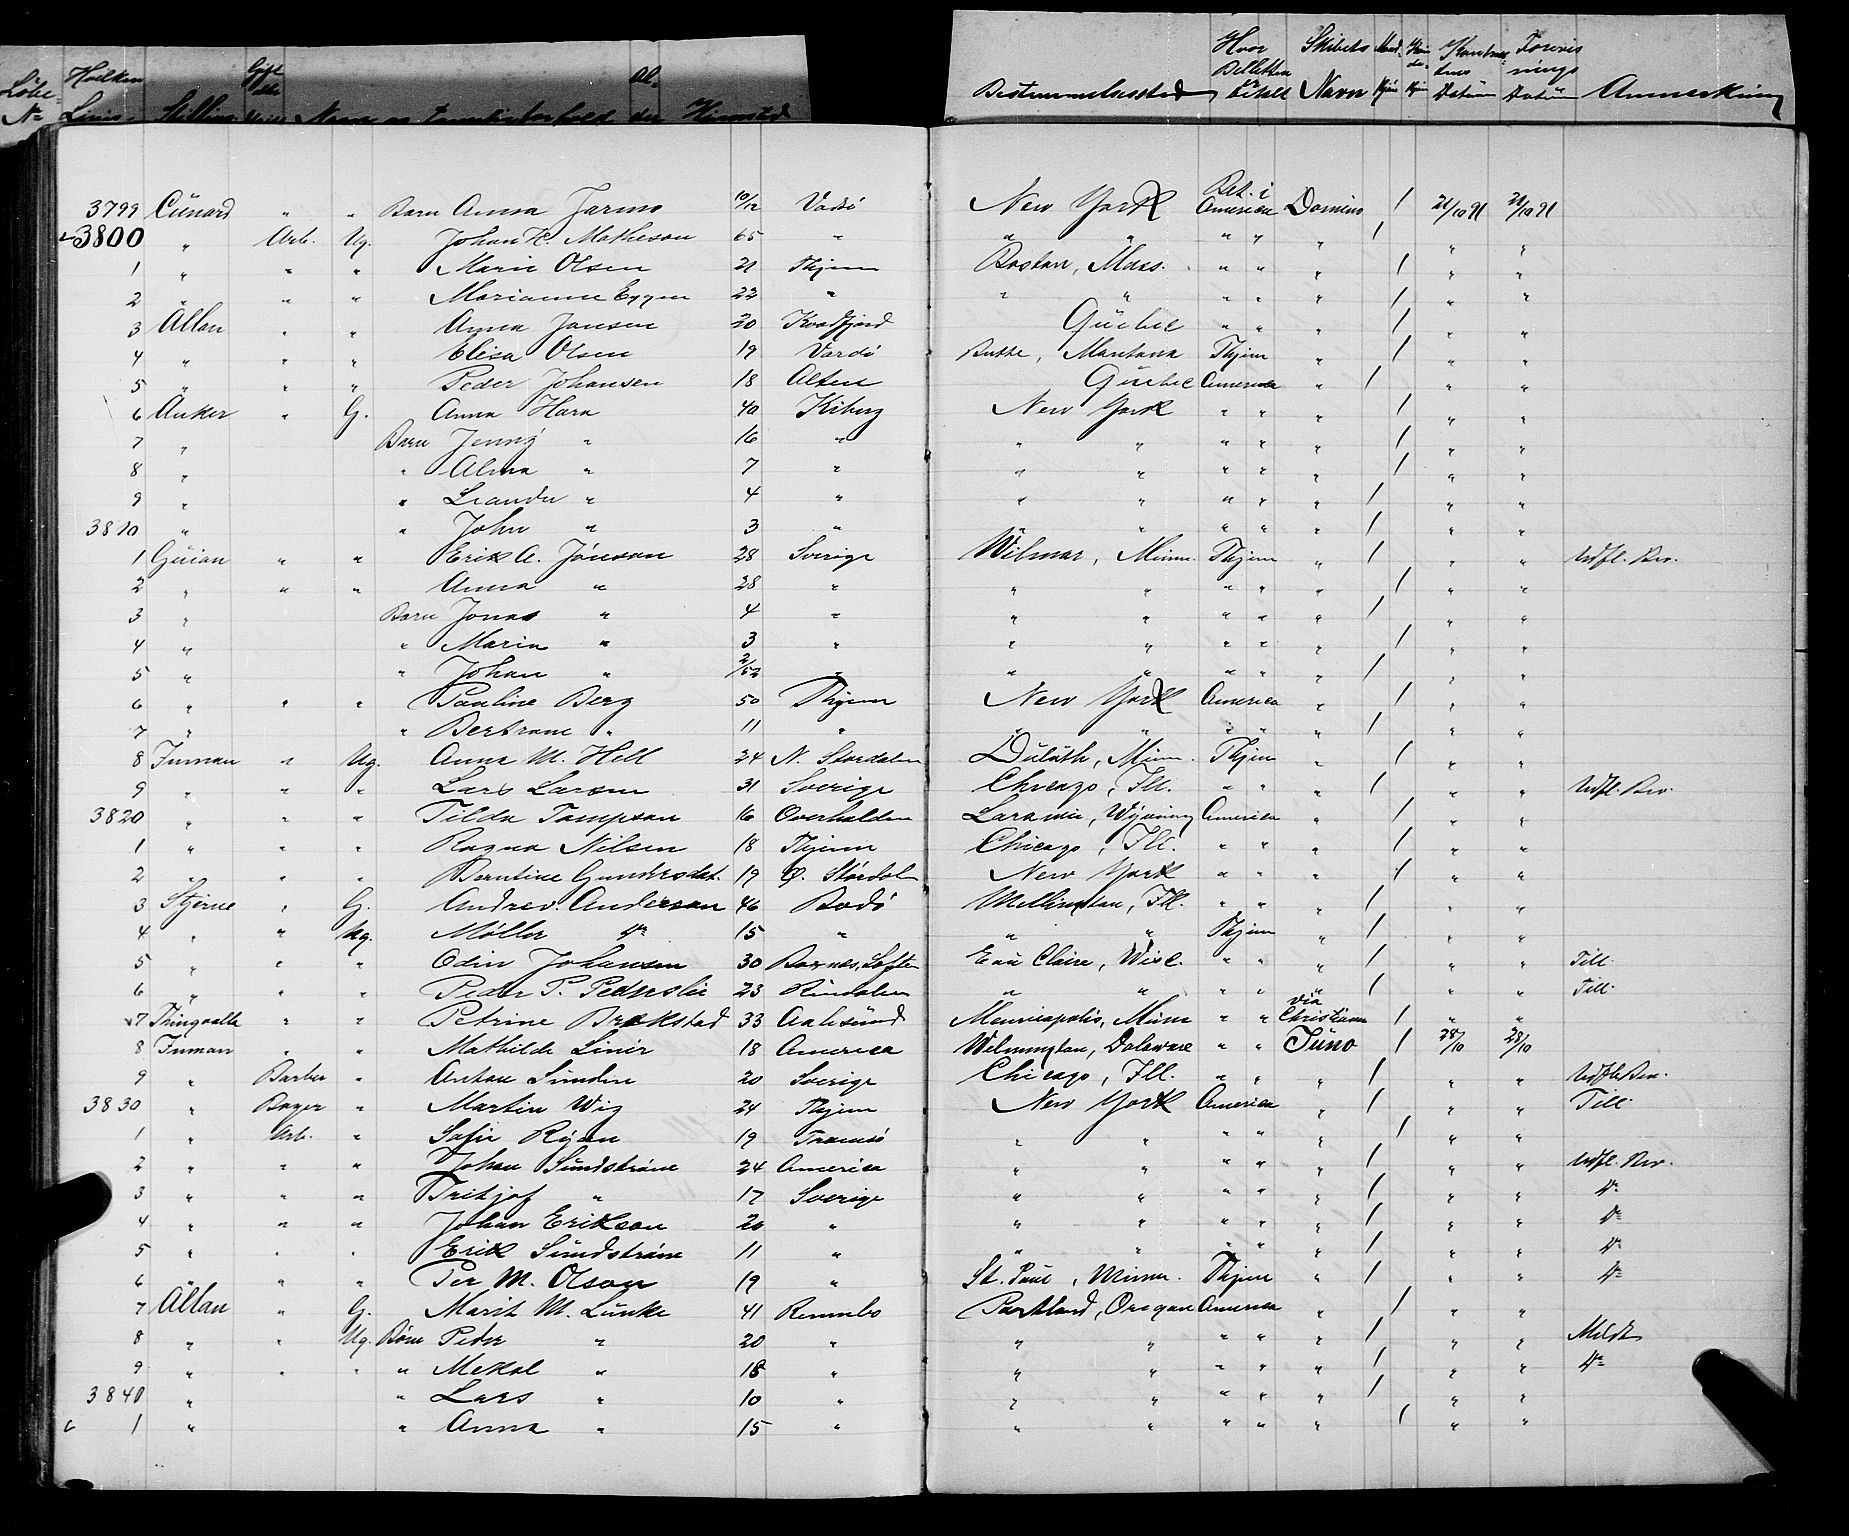 Löbe- No Hvilken Linie. Stilling Gift eller Ugift Navn og Familieforhold Al- der Hjemsted Bestemmelsessted Hvor Billetten er betalt Skibets Navn Mand- kjön Kvin- de- kjön Kontrak- tens Datum Forevis- nings Datum Anmerkning
3799 Cunard " " Barn Anna Jarmo 10/12 Vadsö New York Bet. i America Domino 1 21/10 91 21/10 91
3800 " Arb. Ug. Johan H. Matheson 65 " " " " " " 1 " "
1 " " " Marie Olsen 21 Thjem Boston, Mass. " " " 1 " "
2 " " " Marianne Eggen 22 " " " " " " 1 " "
3 Allan " " Anna Jansen 20 Kvædfjord Quebec " " " 1 " "
4 " " " Elisa Olsen 19 Vardö Butte, Montana Thjem " 1 " "
5 " " " Peder Johansen 18 Alten Quebec America " 1 " "
6 Anker " G. Anna Hara 40 Kiberg New York " " " 1 " "
7 " Barn Jenny " 16 " " " " " " 1 " "
8 " " Alma " 7 " " " " " " 1 " "
9 " " Leander " 4 " " " " " " 1 " "
3810 " " John " 3 " " " " " " 1 " "
1 Guion " " Erik A. Jönsson 28 Sverige Wilmar, Minn. Thjem " 1 " " Udfl. Bev.
2 " " " Anna " 28 " " " " " " 1 " "
3 " Barn Jonas " 4 " " " " " " 1 " "
4 " " Maria " 3 " " " " " " 1 " "
5 " " Johan " 2/52 " " " " " " 1 " "
6 " " " Pauline Berg 50 Thjem New York America " 1 " "
7 " " Bertrane " 11 " " " " " " 1 " "
8 Inman " Ug. Anna M. Hell 24 N. Stordalen Duluth, Minn. Thjem " 1 " "
9 " " " Lars Larsen 31 Sverige Chicago, Ill. " " " 1 " " Udfl. Bev.
3820 " " " Tilda Tompson 16 Overhalden Laramie, Wyoming America " 1 " "
1 " " " Ragna Nilsen 18 Thjem Chicago, Ill. " " " 1 " "
2 " " " Berntine Gundersdat. 19 Ö. Stördalen New York " " " 1 " "
3 Stjerne " G. Andrev. Anderson 46 Bodö Millington, Ill. " " " 1 " "
4 " " Ug. Möller do 15 " " " Thjem " 1 " "
5 " " " Odin Johansen 30 Eau Claire, Wisc. " " " 1 " " Till.
6 " " " Peder P. Pederslie 23 Rindalen " " " " " 1 " " Till.
7 Thingvalla " " Petrine Brækstad 33 Aalesund Menneapolis, Minn " " via Christiania 1 " "
8 Inman " " Mathilde Linér 18 America Wilmington, Dalaware " " Juno 1 28/10 28/10
9 " Barber " Anton Sunden 20 Sverige Chicago, Ill. " " " 1 " " Udfl. Bev.
3830 " Bager " Martin Wig 24 Thjem New York America " 1 " " Till.
1 " Arb. " Sofie 19 Tromsö " " " " " 1 " "
2 " " " Johan Sundströme 24 America " " " " " 1 " " Udfl. Bev.
3 " " " Fritjof " 17 Sverige " " " " " 1 " " do
4 " " " Johan Erikson 20 " " " " " " 1 " " do
5 " " " Erik Sundströme 11 " " " " " " 1 " " do
6 " " " Per M. Olson 19 " St. Paul, Minn. Thjem " 1 " " do
7 Allan " G. Marit M. Lunke 41 Rennebo Portland, Oregon America " 1 " "
8 " " Ug. Börn Peder " 20 " " " " " " 1 " " Meldt
9 " " " " Mekal " 18 " " " " " " 1 " " do
3840 " " Lars " 10 " " " " " " 1 " "
1 " " Anna " 15 " " " " " " 1 " "